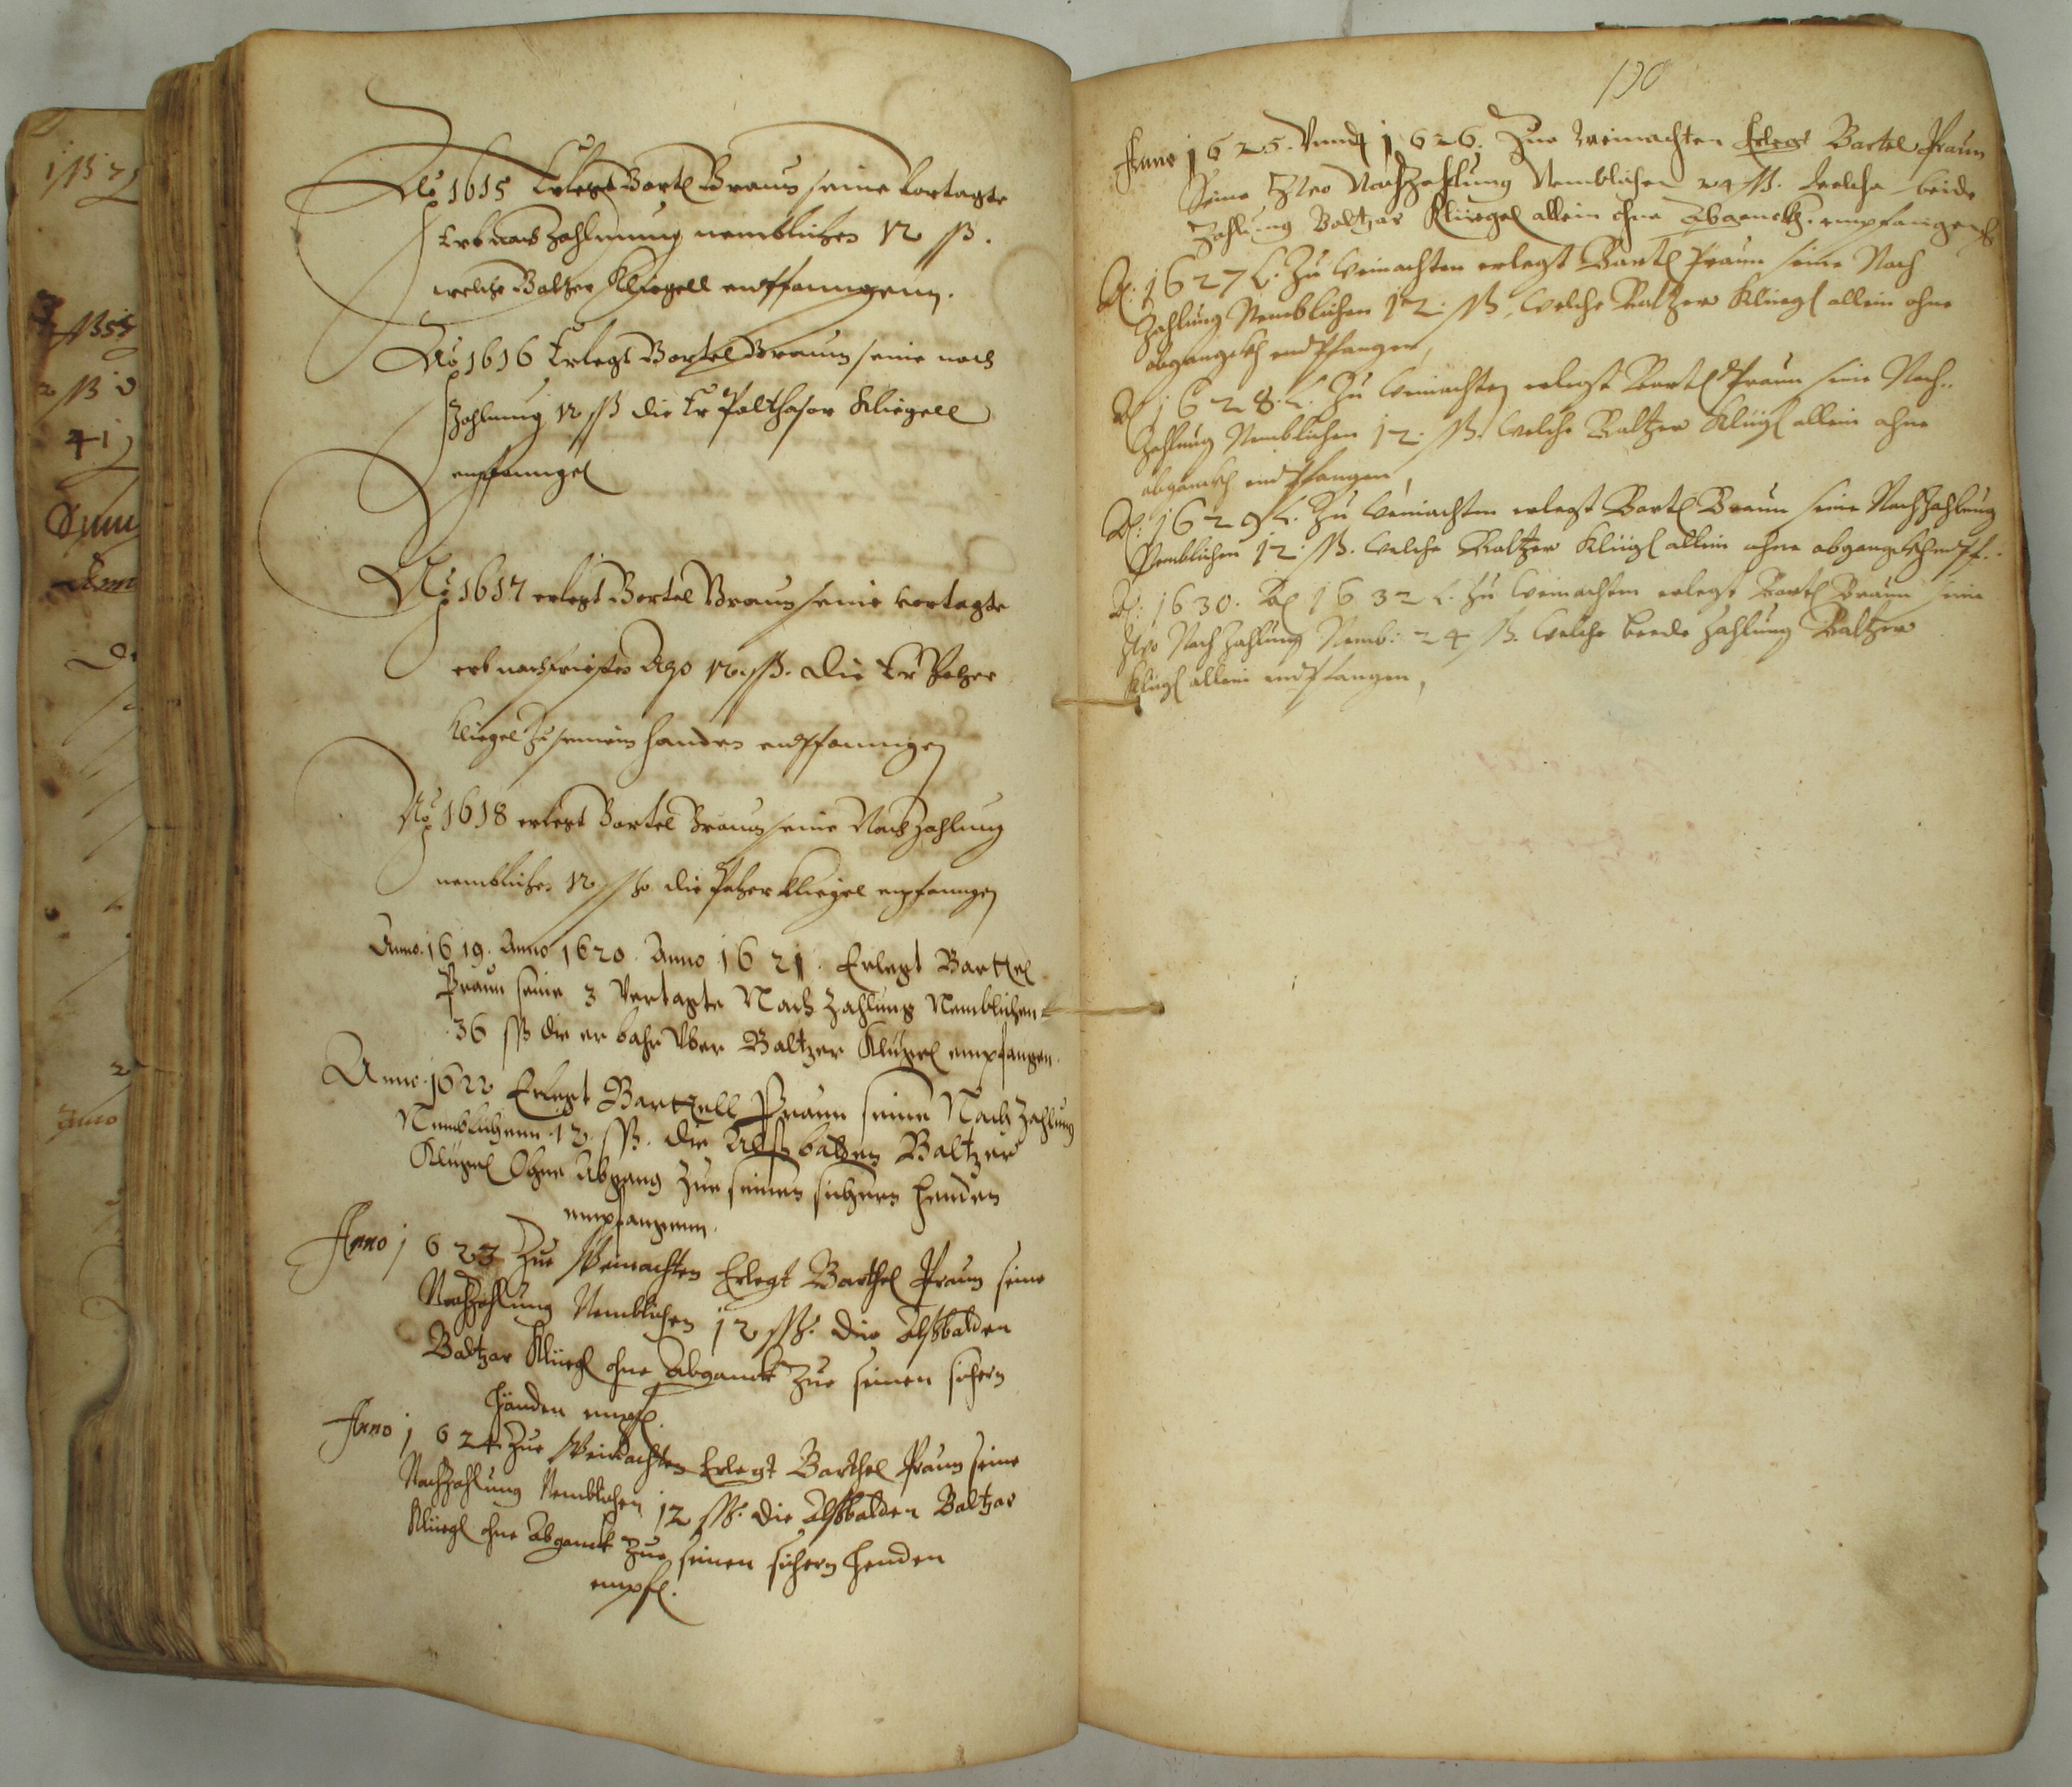 Ao 1615 Erlegt Bartl Braun seine vertagte
Erbnachzahlunng nemblichen 12 ßß.
welche Baltzer Kliegell entpfanngenn.
Ao 1616 Erlegt Bartel Braun seine nach
Zahlung 12 ßß die Er Palthasar Kliegell
empfanngen
Ao 1617 erlegt Bartel Braun seine vertagte
erbnachfristen 12 ßß. die Er Palzer
Kliegel zu seinem handen entpfanngen
Ao 1618 erlegt Bartel Braun seine Nachzahlung
nemblichen 12 ßß die Palzer Kliegel empfanngen
Anno. 1619. Anno 1620. Anno 1621. Erlegt Bartel
Praun seine 3 Vertagte Nach Zahlung Nemblichen
36 ßß die er bahr Vber Baltzer Klügel empfangen.
Anno. 1622 Erlegt Bartell Praun seine Nach Zahlung
Nemblichenn. 12. ßß. die Alß balden Baltzer
Klügel Ohne Abgang Zue seinen sichern henden
empfangenn.
Anno 1623 Zue Weinachten Erlegt Barthel Praun seine
Nachzahlung Nemblichen 12 ßß. die Alßbalden
Baltzar Klüegl ohne Abganck Zue seinen sichern
händen empf.
Anno 1624 Zue Weinachten Erlegt Barthel Praun seine
Nachzahlung Nemblichen 12 ßß. die Alßbalden Baltzar
Klüegl ohne Abganck Zue seinen sichern henden
empf.
190
Anno 1625. Vnnd 1626. Zue Weinachten Erlegt Bartel Praun
Seine Zwo NachZahlung Nemblichen 24 ßß. welche beide
Zahlung Baltzar Klüegel allein ohne Abganck. empfangen
Ao: 1627 Zu Weinachten erlegt Bartl Praun seine Nach
Zahlung Nemblichen 12: ßß, welche Baltzer Klüegl allein ohne
abgangk endtPfangen,
Ao 1628. Zu Weinachten erlegt Bartl Praun seine Nach-
Zahlung Nemblichen 12: ßß. welche Baltzer Klügl allein ohne
abganckh endtPfangen,
Ao: 1629 Zu Weinachten erlegt Bartl Braun seine NachZahlung
Nemblichen 12: ßß. welche Baltzer Klügl allein ohne abgangkh
Ao: 1630. Ao 1632 Zu Weinachten erlegt Bartl Braun seine
Zwo Nach Zahlung Nemb: 24 ßß. welche beede Zahlung Baltzer
Klügl allein endtPfangen,